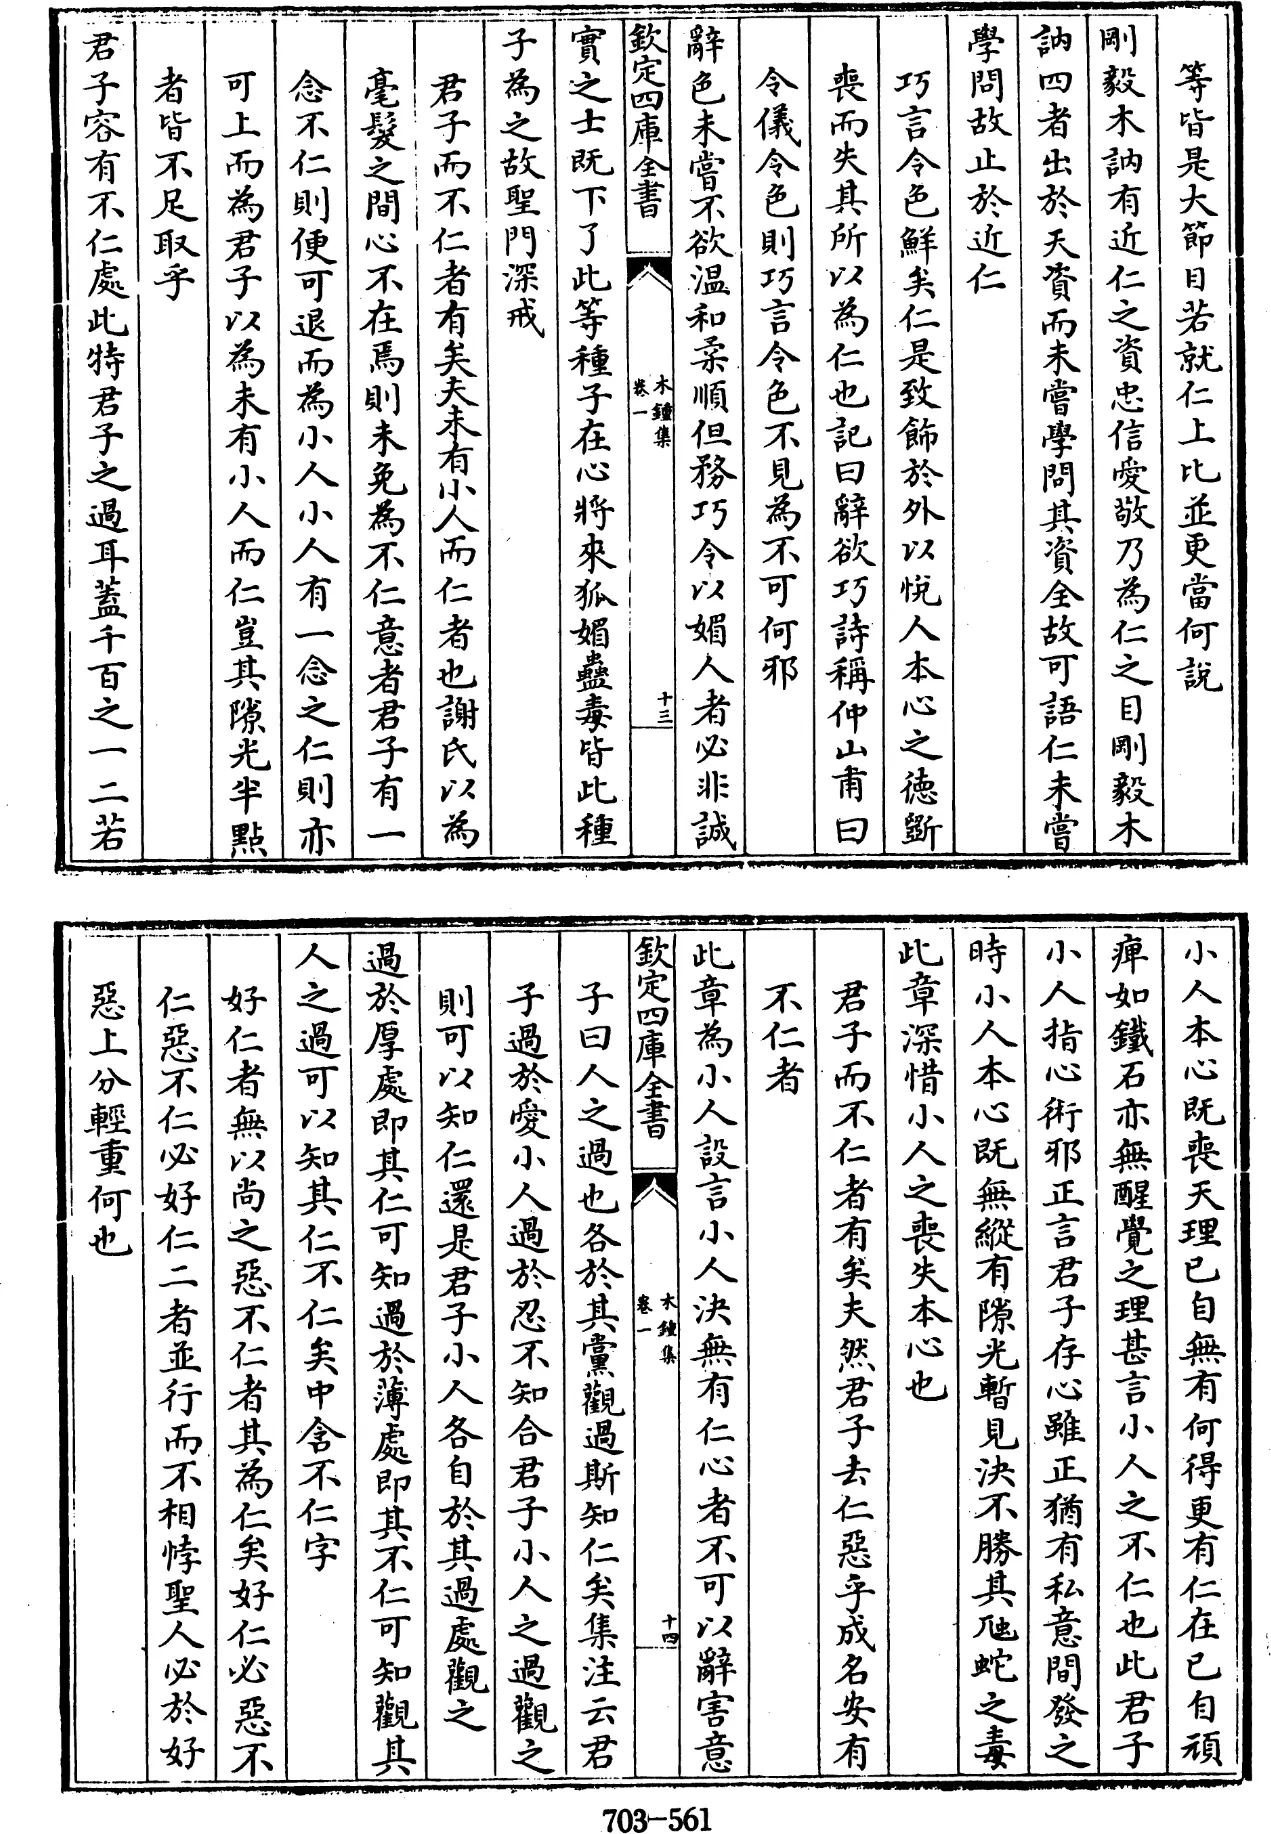 等皆是大節目若就仁上比並更當何說
剛毅木訥有近仁之資忠信愛敬乃為仁之目剛毅木
訥四者出於天資而未嘗學問其資全故可語仁未嘗
學問故止於近仁
巧言令色鮮矣仁是致飾於外以悅人本心之德斵
喪而失其所以為仁也記曰辭欲巧詩稱仲山甫曰
令儀令色則巧言令色不見為不可何邪
辭色未嘗不欲溫和柔順但務巧令以媚人者必非誠
欽定四庫全書
木鐘集
卷一
十三
實之士既下了此等種子在心將來狐媚蠱毒皆此種
子為之故聖門深戒
君子而不仁者有矣夫未有小人而仁者也謝氏以為
毫髮之間心不在焉則未免為不仁意者君子有一
念不仁則便可退而為小人小人有一念之仁則亦
可上而為君子以為未有小人而仁豈其隙光半點
者皆不足取乎
君子容有不仁處此特君子之過耳蓋千百之一二若
小人本心既喪天理已自無有何得更有仁在已自頑
痺如鐵石亦無醒覺之理甚言小人之不仁也此君子
小人指心術邪正言君子存心雖正猶有私意間發之
時小人本心既無縱有隙光暫見決不勝其虺蛇之毒
此章深惜小人之喪失本心也
君子而不仁者有矣夫然君子去仁惡乎成名安有
不仁者
此章為小人設言小人決無有仁心者不可以辭害意
欽定四庫全書
木鐘集
卷一
十四
子曰人之過也各於其黨觀過斯知仁矣集注云君
子過於愛小人過於忍不知合君子小人之過觀之
則可以知仁還是君子小人各自於其過處觀之
過於厚處即其仁可知過於薄處即其不仁可知觀其
人之過可以知其仁不仁矣中含不仁字
好仁者無以尚之惡不仁者其為仁矣好仁必惡不
仁惡不仁必好仁二者並行而不相悖聖人必於好
惡上分輕重何也
703-561